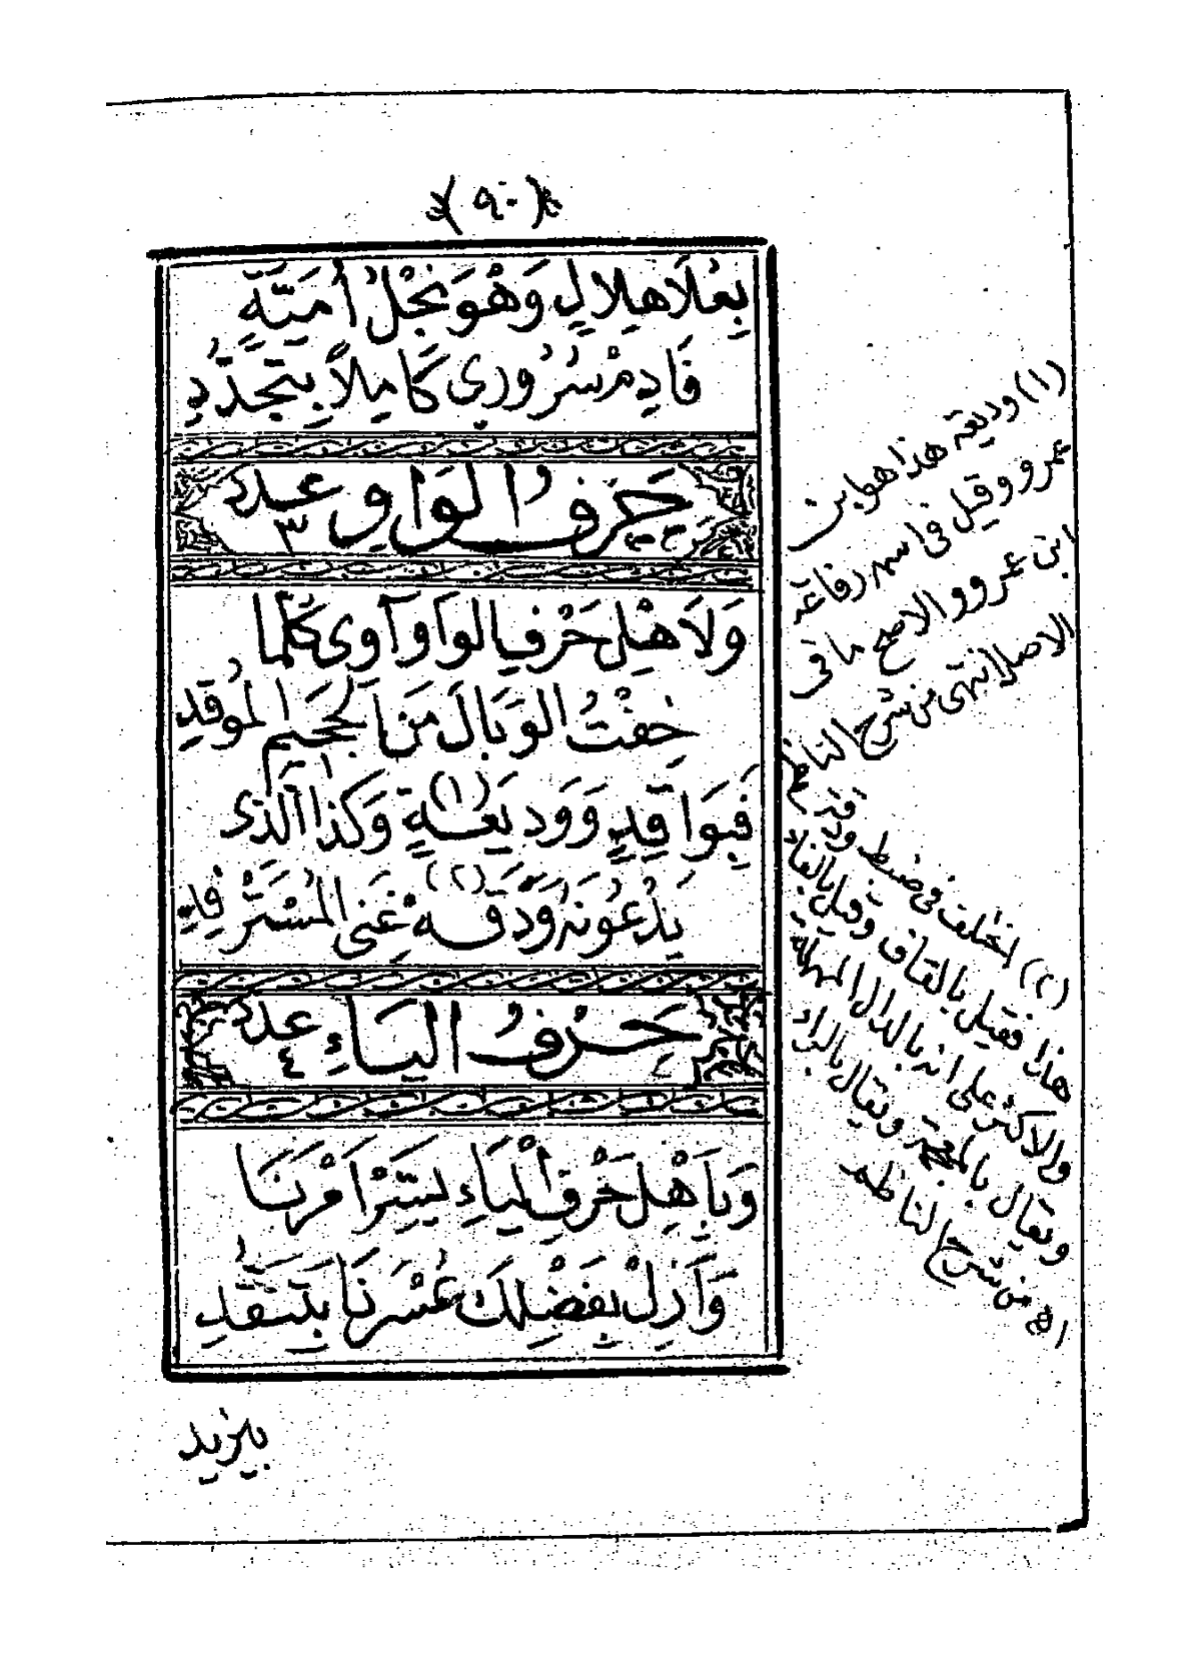 (٩٠)
بِعُلَا هِلَالٍ وَهْوَ نَجْلُ أُمَيَّةٍ
فَادِمْ سُرُورِي كَامِلاً بِتَجَدُّدِ
حَرْفُ الْوَاوِ عدد ٣
وَلَاهْلِ حَرْفِ الواوِ آوِي كُلَّمَا
خِفْتُ الوَبَالَ مَنَ الجَحِيمِ المُوقَدِ
فَبِوَاقِدٍ وَوَدِيعَةٍ (١) وَكَذَا الَّذى
يَدْعُونَهُ وَدَقَه (٢) غِنَى المُسْتَرْفِدِ
حَرْفُ اليَاءِ عدد ٤
وَبِأَهْلِ حَرْفِ الْيَاءِ يَسِّرْ أَمْرَنَا
وَأَزِلْ بِفَضْلِكَ عُسْرَنَا بِتَفَقُّدِ
بيزيد
(١) وديعة هذا هو ابن
عمرو وقيل فى اسمه رفاعة
ابن عمرو والاصح ما فى
الاصل انتهى من شرح الناظم
(٢) اختلف فى ضبط ودقة
هذا فقيل بالقاف وقيل بالفاء
والاكثر على انه بالدال المهملة
ويقال بالمعجمة ويقال بالراء
اه من شرح الناظم